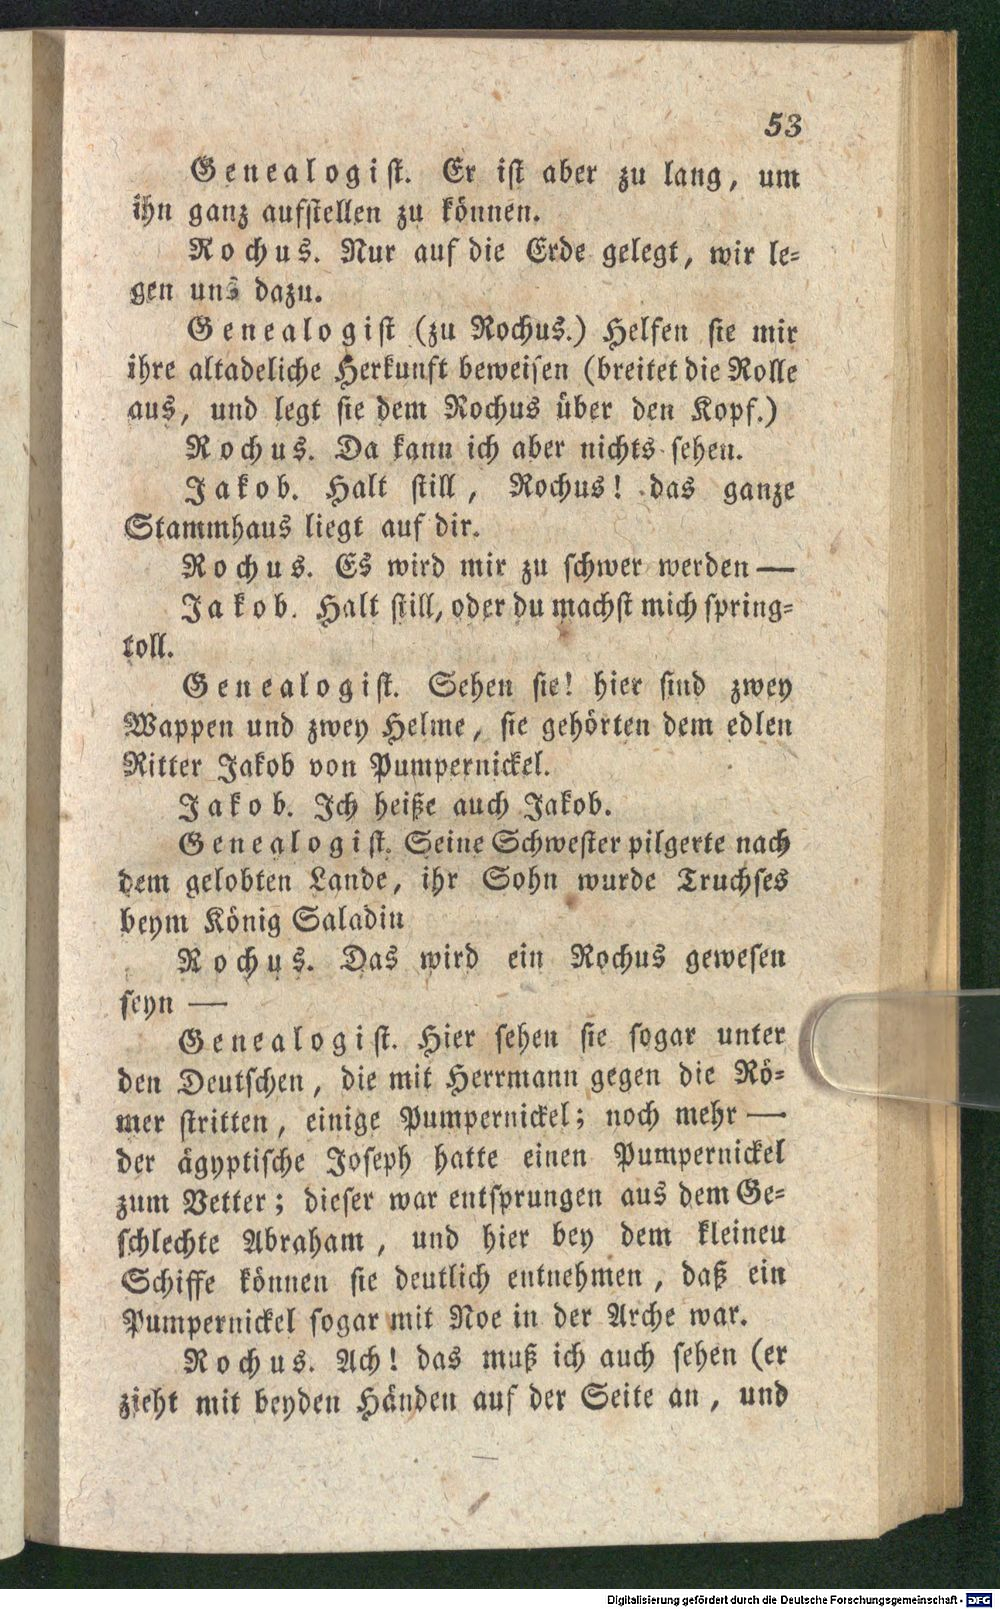 53
Genealogist. Er ist aber zu lang, um
ihn ganz aufstellen zu können.
Rochus. Nur auf die Erde gelegt, wir le-
gen uns dazu.
Genealogist (zu Rochus.) Helfen sie mir
ihre altadeliche Herkunft beweisen (breitet die Rolle
aus, und legt sie dem Rochus über den Kopf.)
Rochus. Da kann ich aber nichts sehen.
Jakob. Halt still, Rochus! das ganze
Stammhaus liegt auf dir.
Rochus. Es wird mir zu schwer werden —
Jakob. Halt still, oder du machst mich spring-
toll.
Genealogist. Sehen sie! hier sind zwey
Wappen und zwey Helme, sie gehörten dem edlen
Ritter Jakob von Pumpernickel.
Jakob. Ich heiße auch Jakob.
Genealogist. Seine Schwester pilgerte nach
dem gelobten Lande, ihr Sohn wurde Truchses
beym König Saladin
Rochus. Das wird ein Rochus gewesen
seyn —
Genealogist. Hier sehen sie sogar unter
den Deutschen, die mit Herrmann gegen die Rö-
mer stritten, einige Pumpernickel; noch mehr —
der ägyptische Joseph hatte einen Pumpernickel
zum Vetter; dieser war entsprungen aus dem Ge-
schlechte Abraham, und hier bey dem kleinen
Schiffe können sie deutlich entnehmen, daß ein
Pumpernickel sogar mit Noe in der Arche war.
Rochus. Ach! das muß ich auch sehen (er
zieht mit beyden Händen auf der Seite an, und
Digitalisierung gefördert durch die Deutsche Forschungsgemeinschaft - DFG